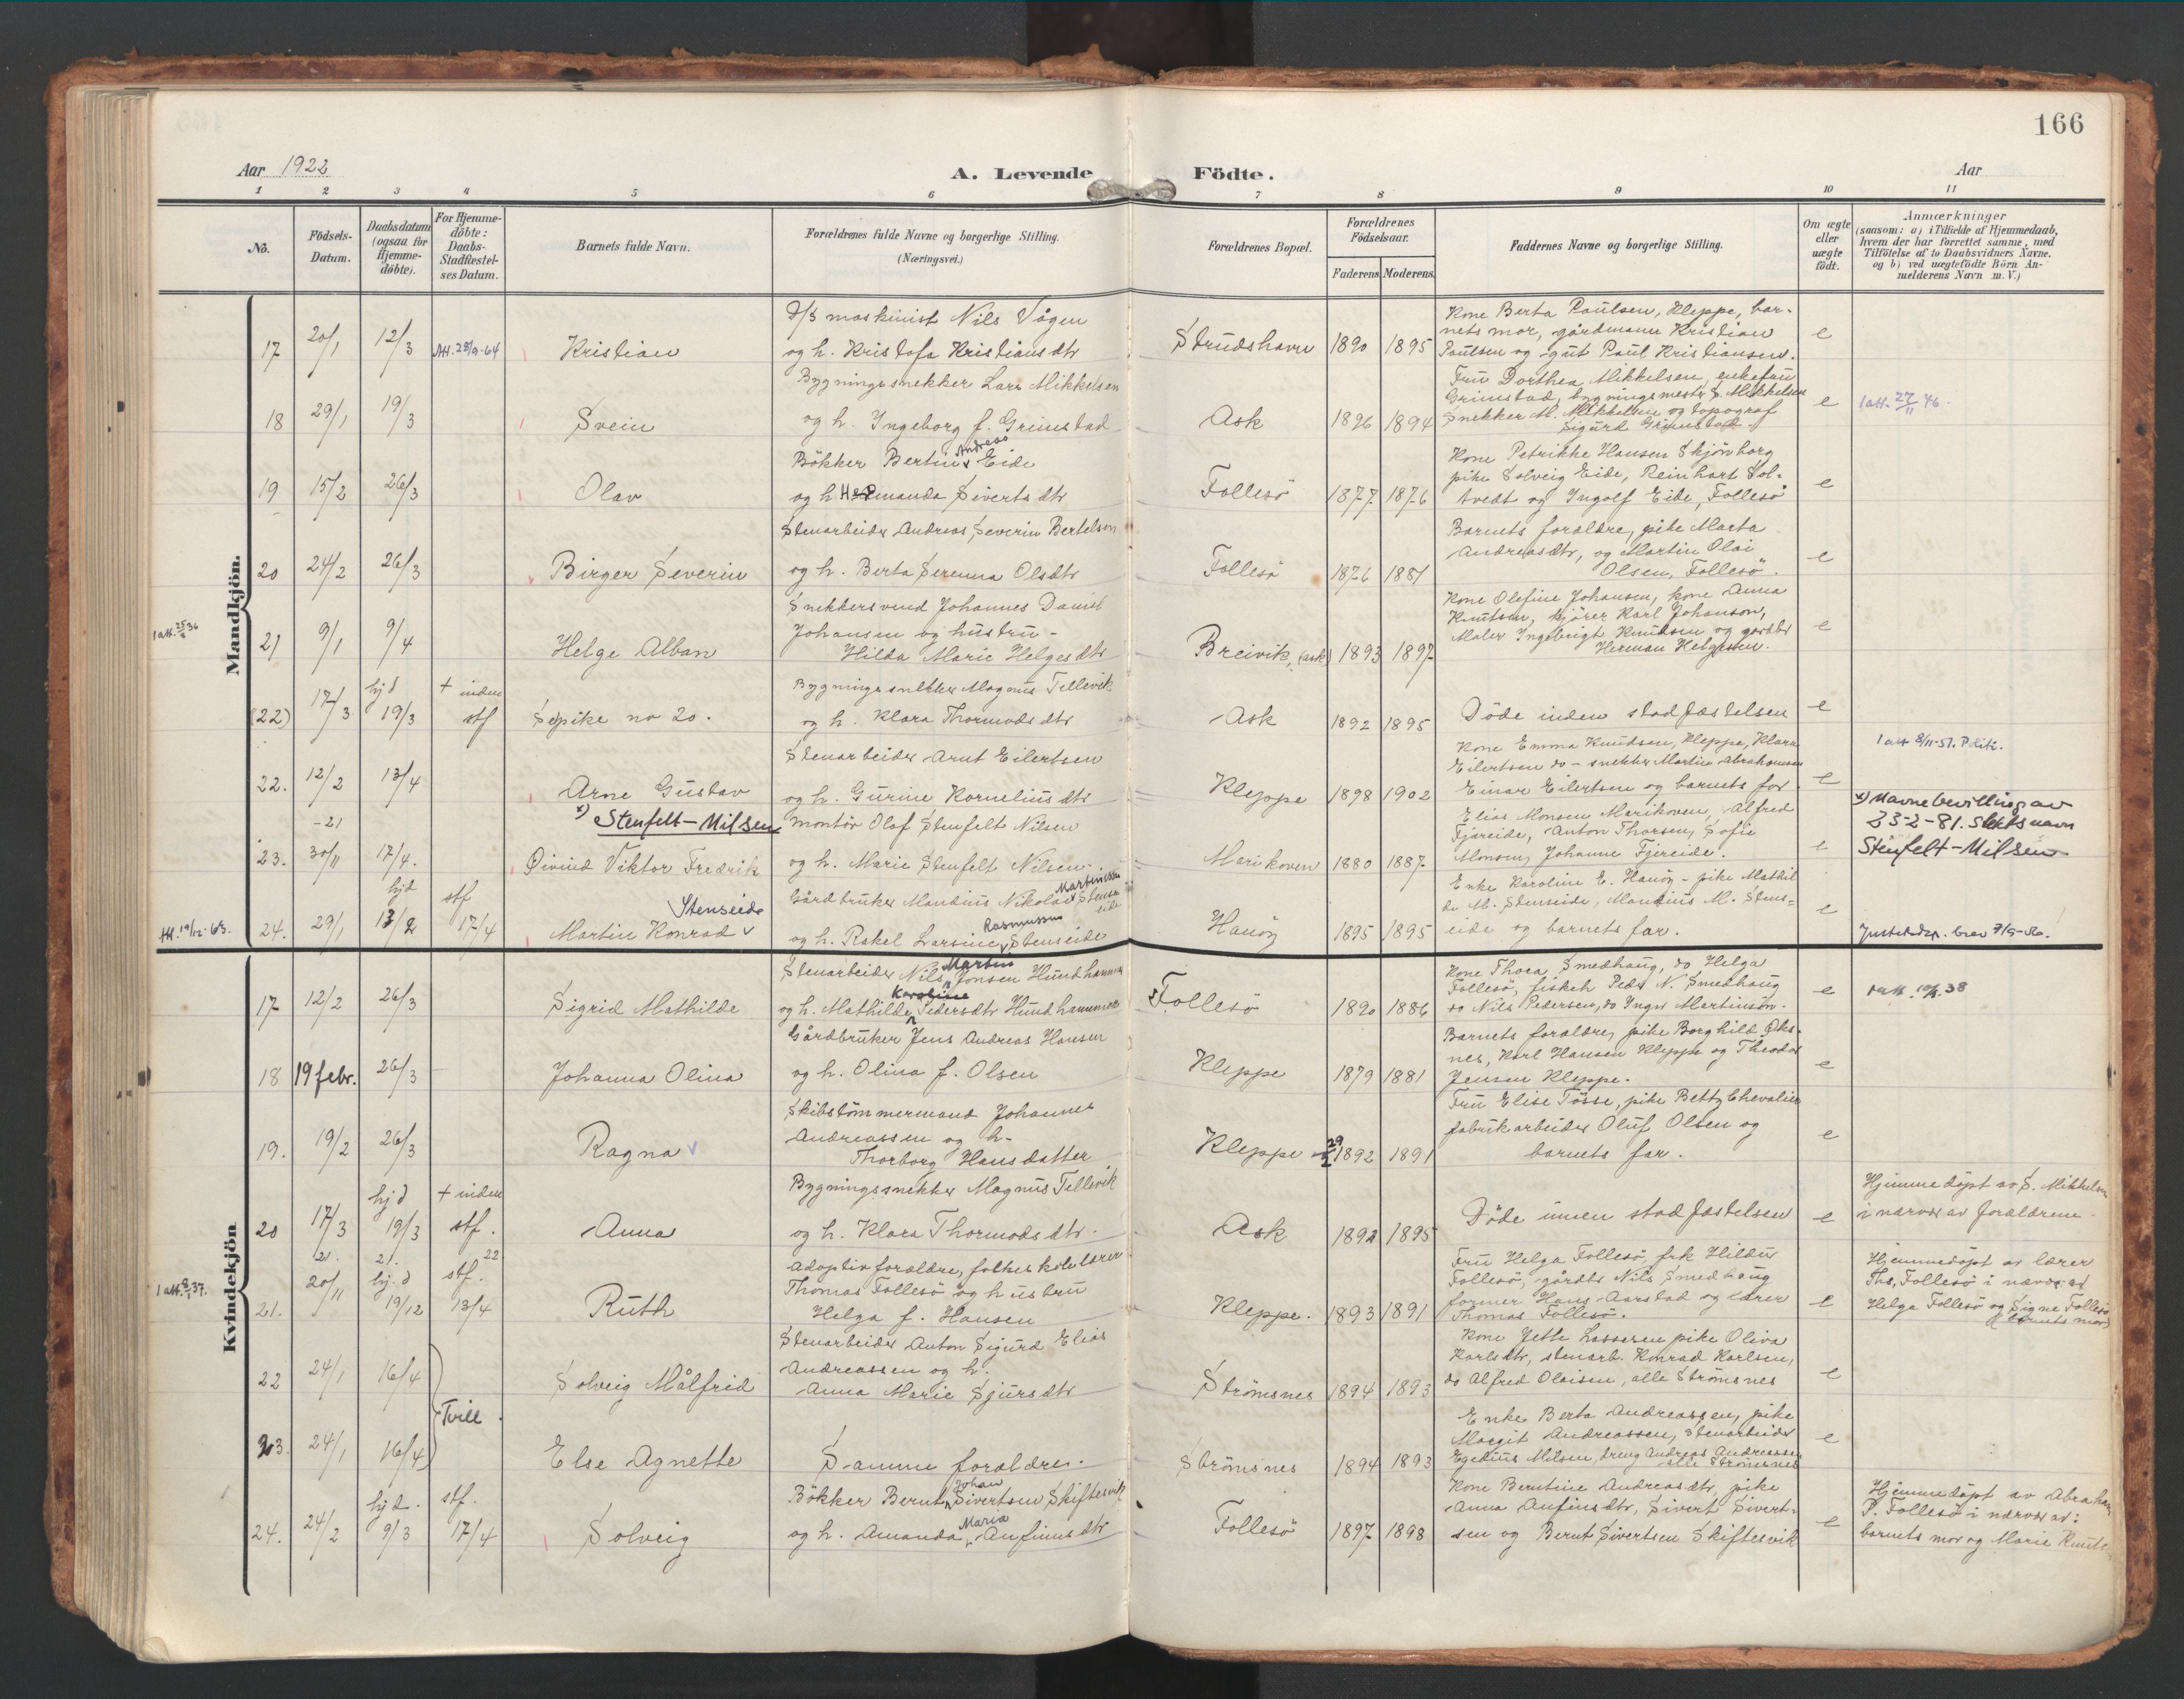 166
Aar 1922
A. Levende
Födte.
Aar
1 2 3 4 5 6 7 8 9 10 11
Nô.
Födsels-
Datum.
Daabsdatum
(ogsaa for
Hjemme-
döbte).
For Hjemme-
döbte:
Daabs-
Stadfæstel-
ses Datum.
Barnets fulde Navn.
Forældrenes fulde Navne og borgerlige Stilling.
(Næringsvei.)
Forældrenes Bopæl.
Forældrenes
Födselsaar.
Faderens Moderens
Faddernes Navne og borgerlige Stilling.
Om ægte
eller
uægte
födt.
Anmærkninger
(saasom: a) i Tilfælde af Hjemmedaab,
hvem der har forrettet samme, med
Tilföielse af to Daabsvidners Navne.
og b) ved uægtefödte Börn An-
melderens Navn m. V.)
Mandkjön.
17 20/1 12/3 Att. 28/9-64 Kristian
D/S maskinist Nils Vågen
og h. Kristofa Kristiansdtr
Strudshavn 1890 1895
Kone Berta Paulsen, Kleppe, bar-
nets mor, gårdmann Kristian
Paulsen og gut Paul Kristiansen.
e
18 29/1 19/3 Svein
Bygningssnekker Lars Mikkelsen
og h. Ingeborg f. Grimstad
Ask 1896 1894
Fru Dorthea Mikkelsen, enkefru
Grimstad, bygningsmestr S. Mikkelsen
Snekker M. Mikkelsen og topograf
Sigurd Grimstad
e 1 att. 27/11 46.
19 15/2 26/3 Olav
Bökker Bertin Andreas Eide
og h Hermanda Sivertsdtr
Follesö 1877 1876
Kone Petrikke Hansen Skjönborg
pike Solveig Eide, Reinhart Sol-
tvedt og Ingolf Eide, Follesö
e
20 24/2 26/3 Birger Severin
Stenarbeider Andreas Severin Bertelsen
og h. Berta Serenna Olsdtr
Follesö 1876 1881
Barnets foraldre, pike Marta
Andreasdtr, og Martin Olai
Olsen, Follesö.
e
21 9/1 9/4 Helge Alban
Snekkersvend Johannes Daniel
Johansen og hustru -
Hilda Marie Helgesdtr
Breivik, (Ask) 1893 1897
Kone Olefine Johansen, kone Anna
Knutsen, kjörer Karl Johanson,
Maler Ingebrigt Knudsen og gardbr
Herman Helgesen.
e
(22) 17/3 hjd 19/3 + inden stf Se pike no 20.
Bygningssnekker Magnus Tellevik
og h. Klara Thormodsdtr
Ask 1892 1895
Döde inden stadfæstelsen
e
22. 12/2 13/4 Arne Gustav
Stenarbeider Arnt Eilertsen
og h. Gurine Korneliusdtr
Kleppe 1898 1902
Kone Emma Knudsen, Kleppe, Klara
Eilertsen do - snekker Martin Abrahamsen
Einar Eilertsen og barnets far
e 1 att 8/11-51. Politi.
23. -21 30/11 17/4. x) Stenfelt-Nilsen
Öivind Viktor Fredrik
montör Olaf Stenfelt Nilsen
og h. Marie Stenfelt Nilsen
Marikoven 1880 1887
Elias Monsen Marikoven, Alfred
Fjereide, Anton Thorsen, Sofie
Monsen, Johanne Fjereide.
e
x) Navnebevilling av
23-2-81. Slektsnavn
Stenfelt-Nilsen
Att. 19/12-63. 24. 29/1 hjd 13/2 stf 17/4 Stenseide
Martin Konrad
Gårdbruker Mandius Nikolai Martinssen Stenseide
og h. Rakel Larsine Rasmussen Stenseide
Hanöy 1895 1895
Enke Karoline E. Hanöy - pike Mathil-
de M. Stenseide, Mandius M. Stens-
eide og barnets far.
e
Kvindekjön
17 12/2 26/3 Sigrid Mathilde
Stenarbeider Nils Martin Jonsen Hundhammer
og h. Mathilde Karoline Pedersdtr Hundhammer
Follesö 1890 1886
Kone Thora Smedhaug, do Helga
Follesö, fisker Peder N. Smedhaug
do Nils Pedersen, do Inger Martinson.
e
18 19 febr. 26/3 Johanna Olina
Gårdbruker Jens Andreas Hansen
og h. Olina f. Olsen
Kleppe 1879 1881
Barnets foraldre, pike Borghild Öks-
nes, Karl Hansen Kleppe og Theodor
Jensen Kleppe.
e
19. 19/2 26/3 Ragna
Skibstömmermand Johannes
Andreassen og h-
Thorborg Hansdatter
Kleppe 1892 1891
Fru Elise Tösse, pike Betty Chevalier
fabrikarbeider Oluf Olsen og
barnets far.
e
20 17/3 hjd 19/3 + inden stf. Anna
Bygningssnekker Magnus Tellevik
og h. Klara Thormodsdtr.
Ask 1892 1895
Döde innen stadfæstelsen
e
Hjemmedöpt av S. Mikkelsen
i nærvær av foraldrene.
21. 21. 20/11 21. hj.d 19/12 22 stf. 13/4 Ruth
Adoptivforaldre, folkeskolelærer
Thomas Follesö og hustru
Helga f. Hansen
Kleppe. 1893 1891
Fru Helga Follesö, frk Hildur
Follesö, gårdbr Nils Smedhaug
former Hans Aarstad og lærer
Thomas Follesö.
e
Hjemmedöpt av lærer
Ths. Follesö i nærvær av
Helga Follesö og Signe Follesö
(barnets mor)
22 24/1 16/4 Solveig Målfrid
Stenarbeider Anton Sigurd Elias
Andreassen og h.
Anna Marie Sjursdtr
Strömsnes 1894 1893
Kone Jette Lasseren pike Oliva
Karlsdtr, stenarb. Konrad Karlsen,
do Alfred Olaisen, alle Strömsnes
e
Tvill.
23. 24/1 16/4 Else Agnette
Samme foraldre.
Strömsnes 1894 1893
Enke Berta Andreassen, pike
Margit Andreassen, stenarbeider
Egedius Nilsen, dreng Andreas Andreassen
alle Strömsnes
e
24. 24/2 hjd. 9/3 stf. 17/4 Solveig
Bökker Bernt Johan Sivertsen Skiftesvik
og h. Amanda Maria Anfinnsdtr
Follesö 1897 1898
Kone Berntine Andreasdtr, pike
Anna Anfinsdtr, Sivert Sivert-
sen og Bernt Sivertsen Skiftesvik
e
Hjemmedöpt av Abraham
P. Follesö i nærvær av:
barnets mor og Marie